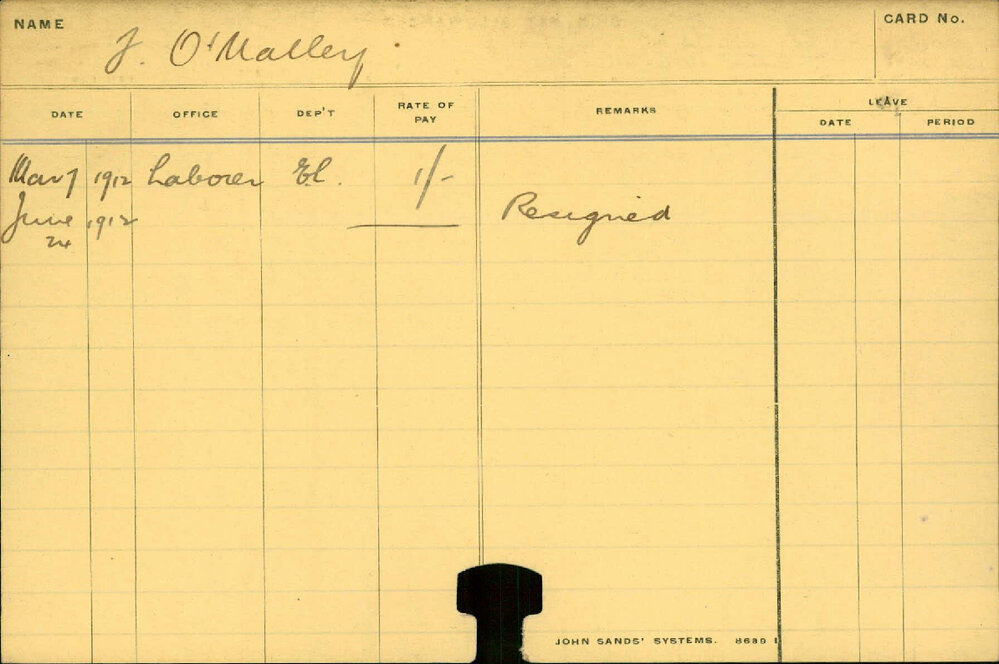 NAME J. O'Malley. CARD No.
DATE OFFICE DEP'T RATE OF PAY REMARKS LEAVE
DATE PERIOD
Mar 7 1912 Laborer El. 1/-
June 24 1912 Resigned
JOHN SANDS' SYSTEMS. 8689